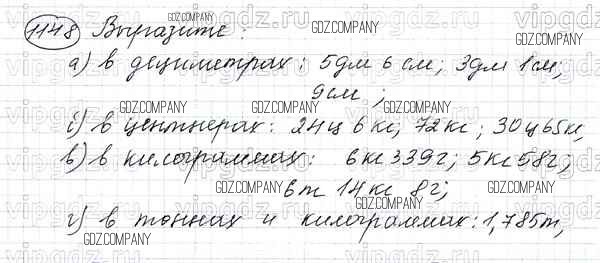 1148 Выразите:
а) в дециметрах: 5дм 6см; 3дм 1см;
9см;
б) в центнерах: 24ц 6кг; 72кг; 30ц 65кг,
в) в килограммах: 6кг 339г; 5кг 58г;
6т 14кг 8г;
г) в тоннах и килограммах: 1,785т,